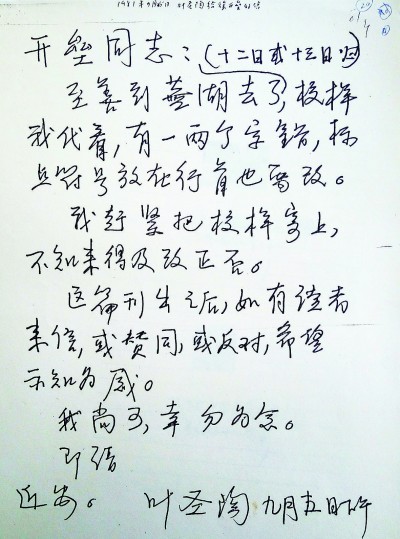 开垒同志：(十二日或十三日归)
至善到芜湖去了，校样
我代看，有一两个字错，标
点符号放在行首也要改。
我赶紧把校样寄上，
不知来得及改正否。
这篇刊出之后，如有读者
来信，或赞同，或反对，希望
示知为感。
我尚可，幸勿为念。
即请
近安。 叶圣陶 九月五日下午